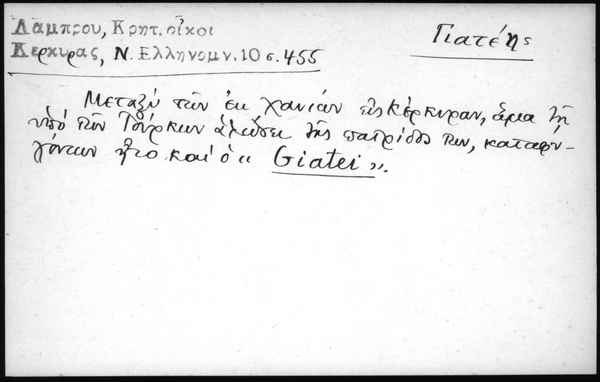 Λάμπρου, Κρητ. οἶκοι
Κερκύρας, Ν. Ελληνομν. 10 σ. 455
Γιατέης
Μεταξὺ τῶν ἐκ Χανίων εἰς Κέρκυραν, ἅμα τῇ
ὑπὸ τῶν Τούρκων ἁλώσει τῆς πατρίδος των, καταφυ-
γόντων ἦτο καὶ ὁ « Giatei ».